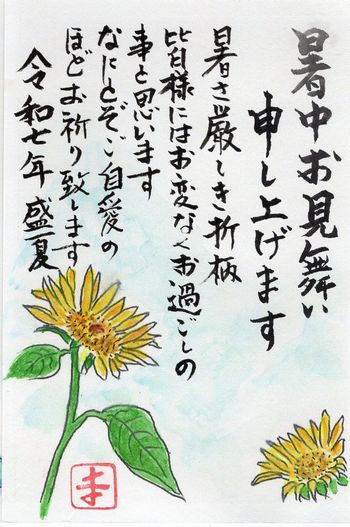 暑中お見舞い
申し上げます
暑さ厳しき折柄
皆様にはお変なくお過ごしの
事と思います
なにとぞご自愛の
ほどお祈り致します
令和七年盛夏